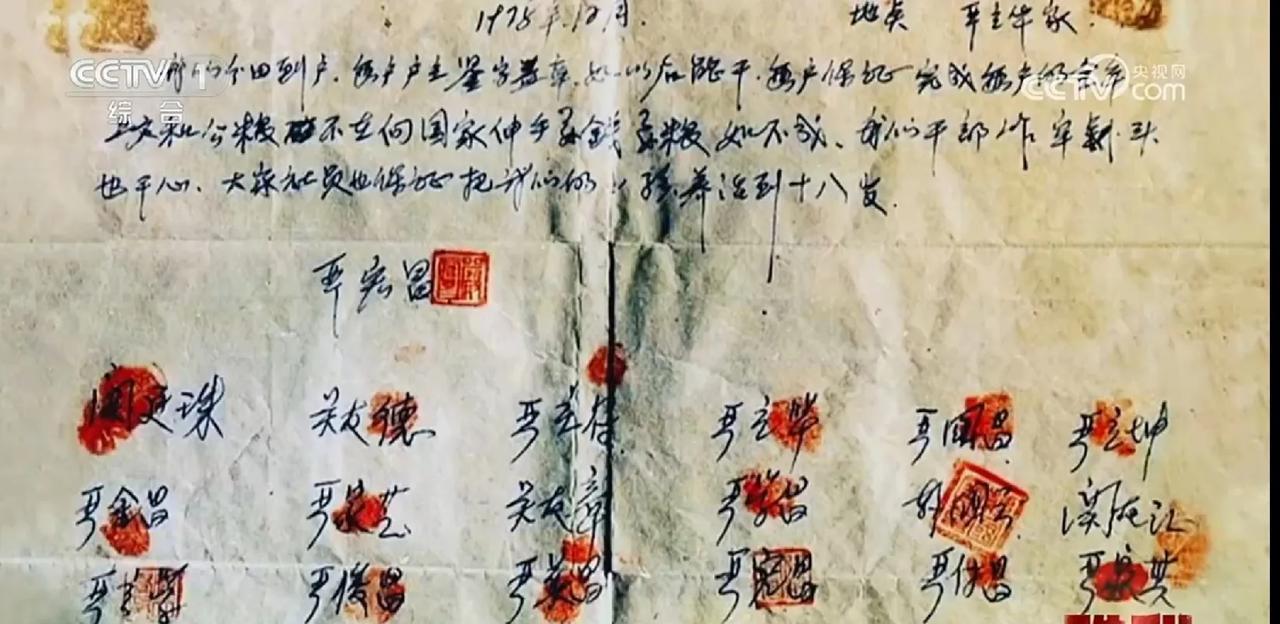 1978年12月. 地点 严立华家.
CCTV 1
综合
央视网
CCTV com
我们分田到户, 每户户主签字盖章, 如以后能干, 每户保证完成每户的全年
上交和公粮 不在向国家伸手要钱要粮 如不成, 我们干部作牢刹头
也干心, 大家社员也保证把我们的小孩养活到十八岁.
严宏昌
关廷珠 关友德 严立符 严立华 严国昌 严立坤
严金昌 严家芝 关友章 严学昌 韩国云 关友江
严立学 严俊昌 严美昌 严宏昌 严付昌 严家其